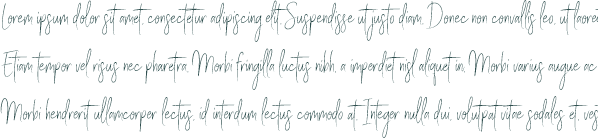 Lorem ipsum dolor sit amet, consectetur adipiscing elit. Suspendisse ut justo diam. Donec non convallis leo, ut laoree
Etiam tempor vel risus nec pharetra. Morbi fringilla luctus nibh, a imperdiet nisl aliquet in. Morbi varius augue ac
Morbi hendrerit ullamcorper lectus, id interdum lectus commodo at. Integer nulla dui, volutpat vitae sodales et, ves